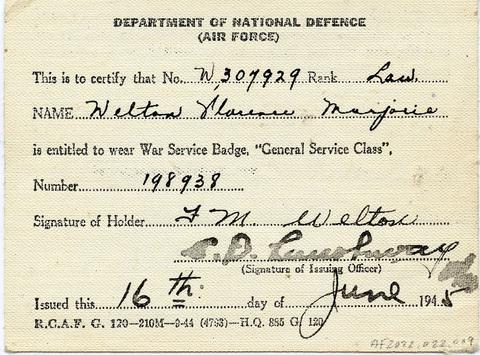 DEPARTMENT OF NATIONAL DEFENCE
(AIR FORCE)
This is to certify that No. W.307929 Rank Law.
NAME Welton Florence Marjorie
is entitled to wear War Service Badge, "General Service Class",
Number 198938
Signature of Holder F M. Welton
(Signature of Issuing Officer)
Issued this 16th day of June 1945
R.C.A.F. G. 120—210M—9-44 (4783)—H.Q. 885 G. 120
AF2022.022.009